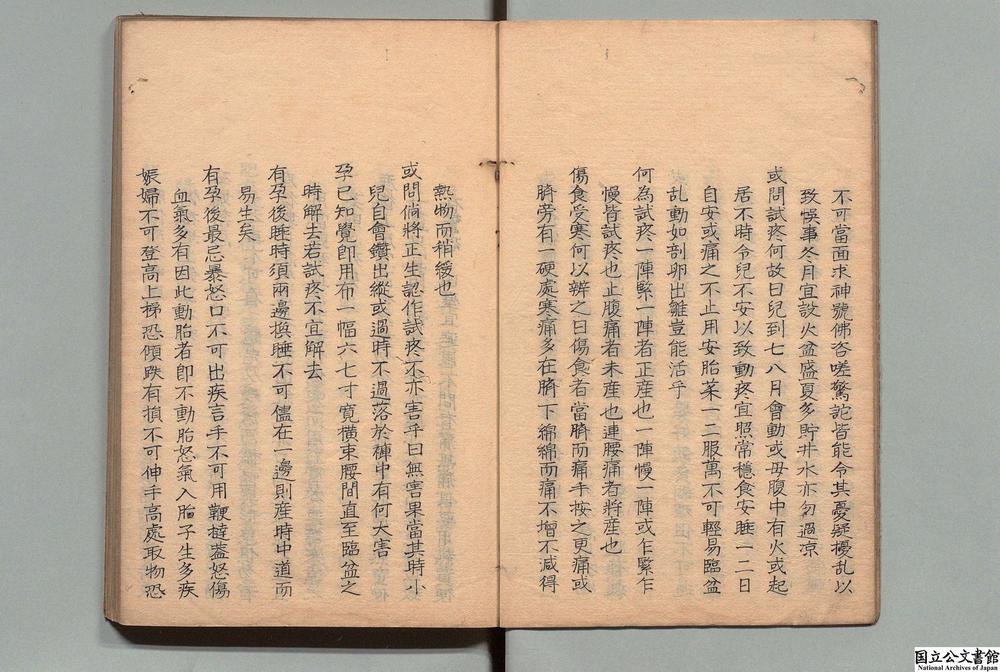 不可當面求神號佛咨嗟驚詫皆能令其憂疑擾乱以
致悞事冬月宜設火盆盛夏多貯井水亦勿過凉
或問試疼何故曰兒到七八月會動或母腹中有火或起
居不時令兒不安以致動疼宜照常穩食安睡一二日
自安或痛之不止用安胎藥一二服萬不可輕易臨盆
乱動如剖卵出雛豈能活乎
何為試疼一陣緊一陣者正産也一陣慢一陣或乍緊乍
慢皆試疼也止腹痛者未産也連腰痛者將産也
傷食受寒何以辨之曰傷食者當臍而痛手按之更痛或
臍旁有一硬處寒痛多在臍下綿綿而痛不增不減得
熱物而稍緩也
或問倘將正生認作試疼不亦害乎曰無害果當其時小
兒自會鑽出縱或過時不過落於褲中有何大害
孕已知覺即用布一幅六七寸寬橫束腰間直至臨盆之
時解去若試疼不宜解去
有孕後睡時須兩邊換睡不可儘在一邊則産時中道而
易生矣
有孕後最忌暴怒口不可出疾言手不可用鞭撻葢怒傷
血氣多有因此動胎者即不動胎怒氣入胎子生多疾
娠婦不可登高上梯恐傾跌有損不可伸手高處取物恐
国立公文書館
National Archives of Japan